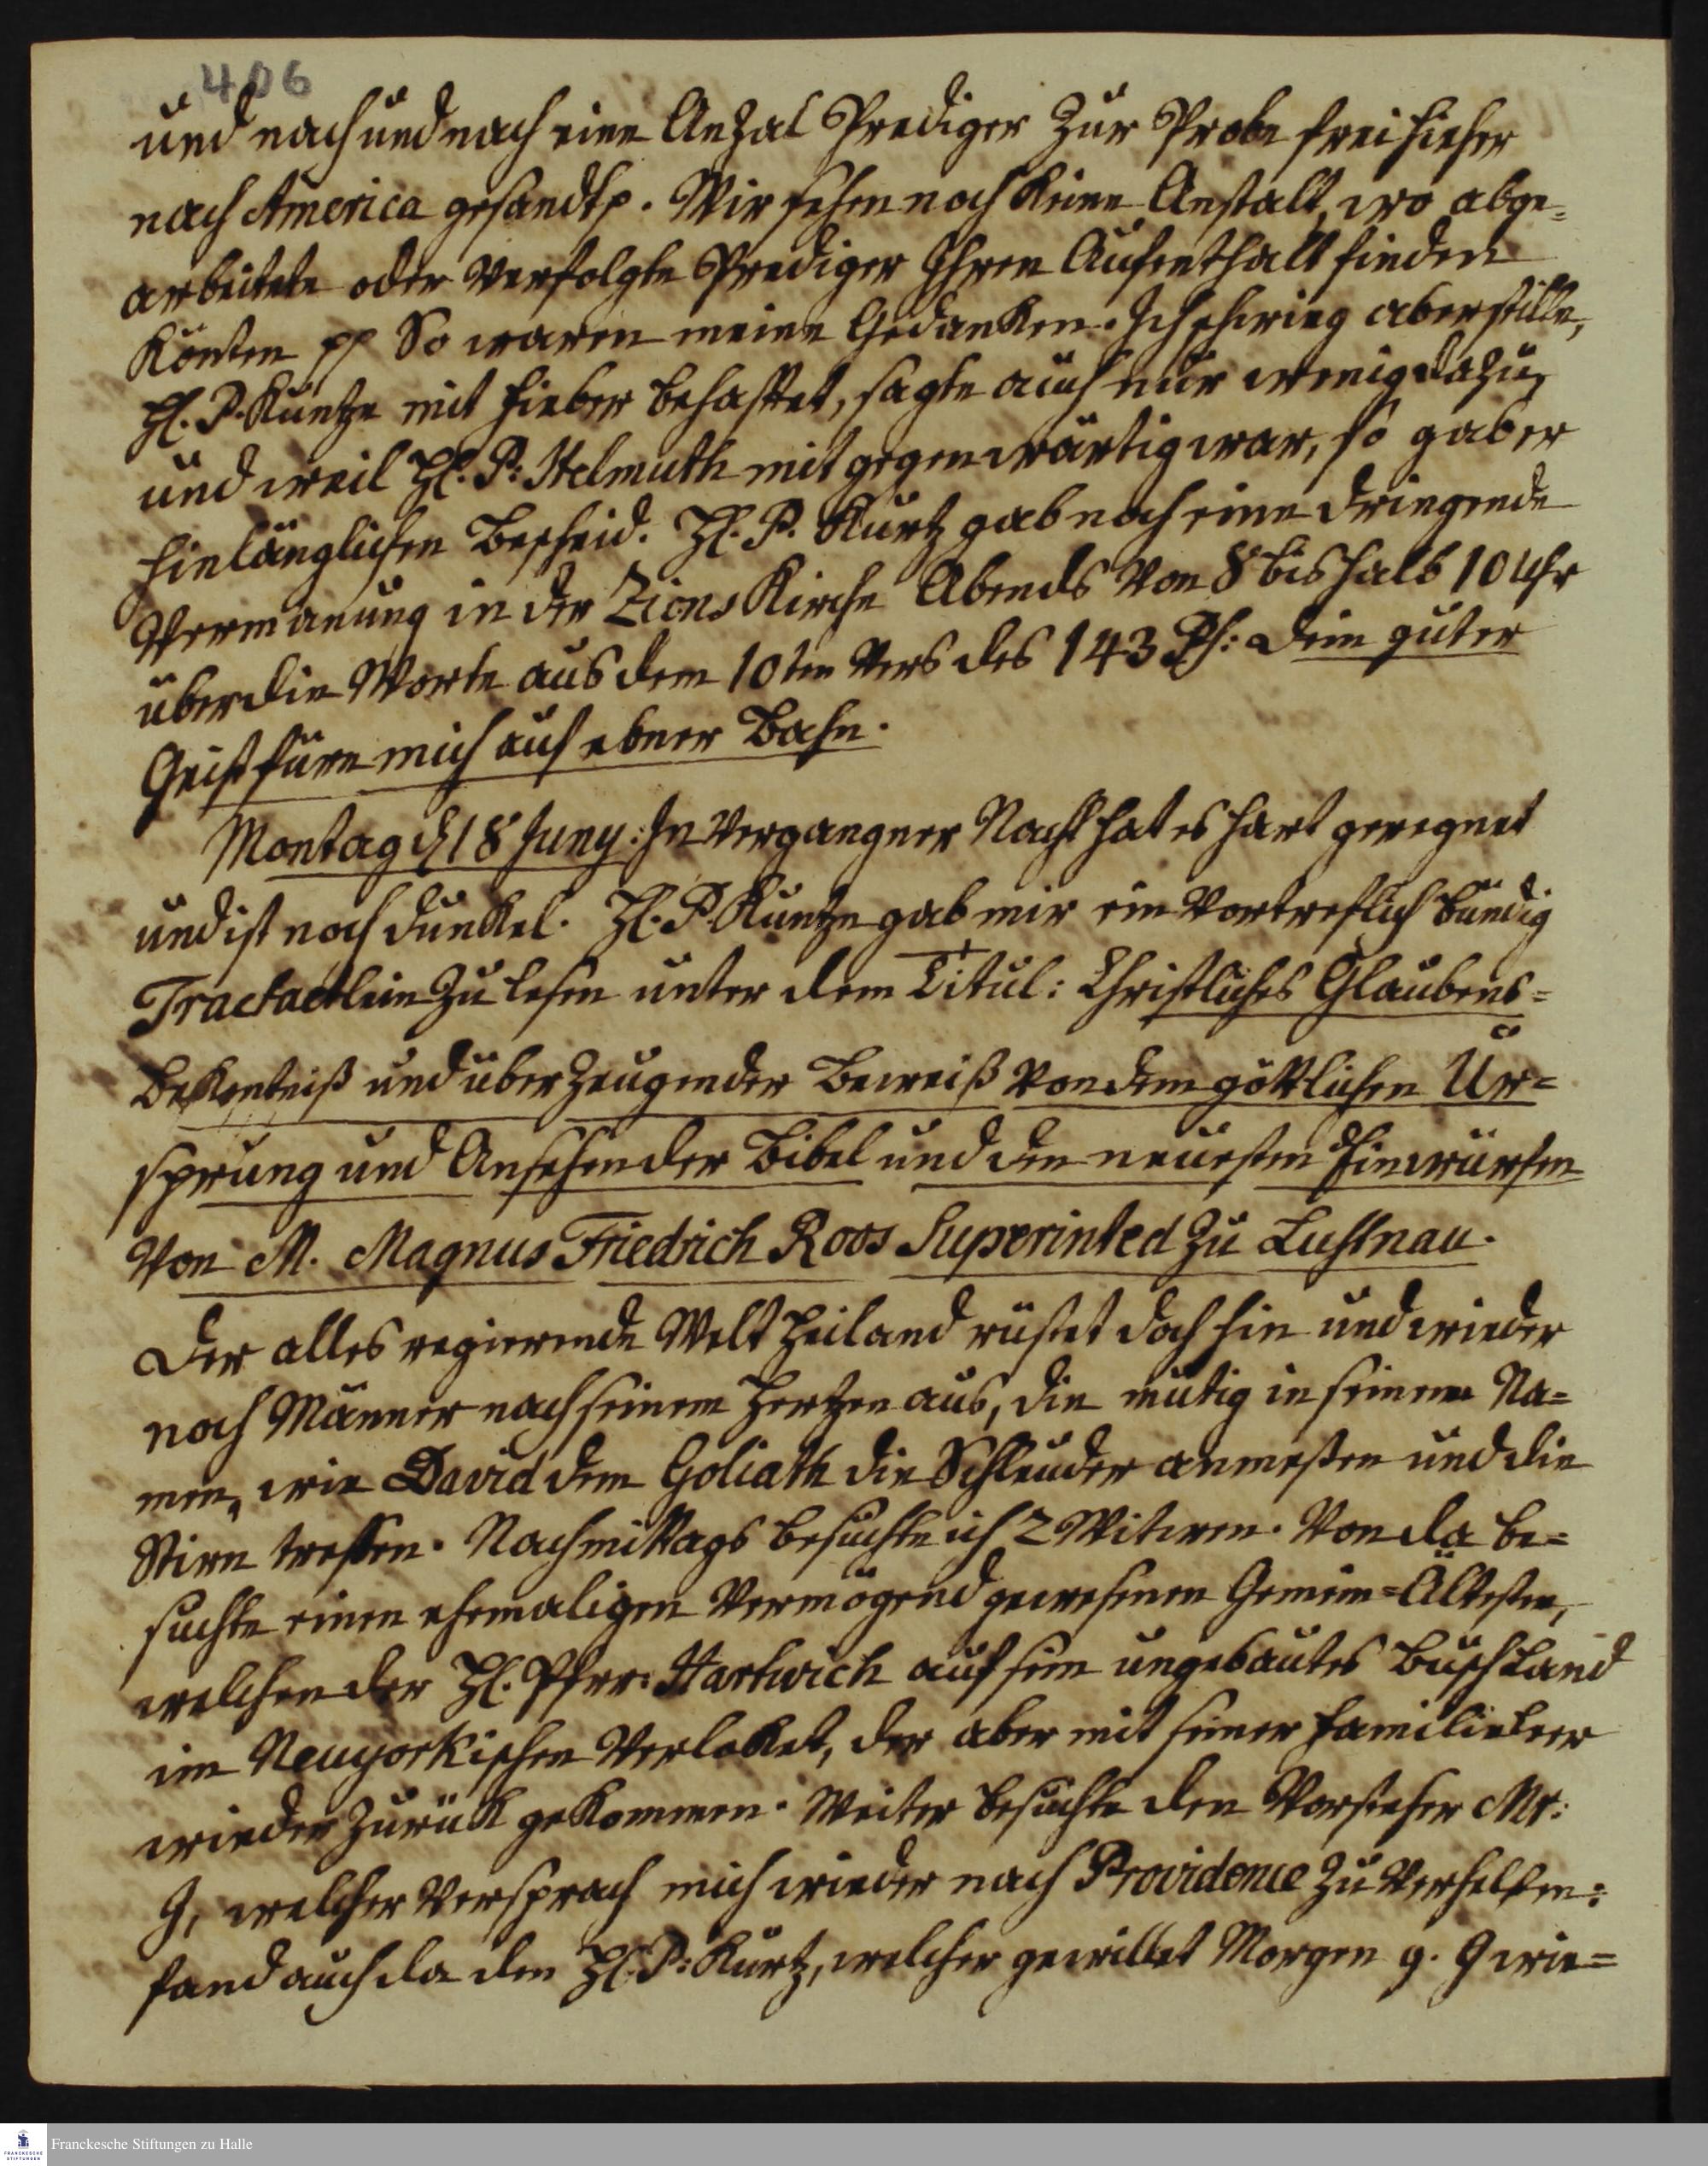 406
und nach und nach eine Anzal Prediger zur Probe frei hieher
nach America gesandt p. Wir sehen noch keine Anstalt, wo abge=
arbeitete oder verfolgte Prediger Ihren Aufenthalt finden
könten pp So waren meine Gedanken. Ich schwieg aber stille,
H. P. Kuntze mit Fieber behaftet, sagte auch nur wenig dazu,
und weil H. P: Helmuth mit gegenwärtig war, so gab er
hinlänglichen Bescheid. H. P. Kurtz gab noch eine dringende
Vermanung in der Zions Kirche Abends von 8 bis halb 10 Uhr
über die Worte aus dem 10ten Vers des 143 Ps: dein guter
Geist füre mich auf ebner Bahn.
Montag d 18 Juny: In vergangner Nacht hat es hart geregnet
und ist noch dunkel. H. P. Kuntze gab mir ein vortreflich bündig
Tractaetlein zu lesen unter dem Titul: Christliches Glaubens=
bekentniß und überzeugender Beweiß von dem göttlichen Ur=
sprung und Ansehen der Bibel und den neuesten Einwürfen
von M. Magnus Friedrich Roos Superinted zu Lustnau.
Der alles regierende Welt Heiland rüstet doch hin und wieder
noch Männer nach seinem Hertzen aus, die mutig in seinem Na=
men, wie David dem Goliath die Schleuder anmeßen und die
Stirn treffen. Nachmittags besuchte ich 2 Witwen. Von da be=
suchte einen ehemaligen vermögend gewesenen Gemein=Ältesten,
welchen der H. Pfrr: Hartwich auf sein ungebautes Buschland
im Neuyorkischen verloket, der aber mit seiner Familie leer
wieder zurük gekommen. Weiter besuchte den Vorsteher Mr:
G, welcher versprach mich wieder nach Providence zu verhelfen:
fand auch da den H. P: Kurtz, welcher gewillet Morgen g. G wie=
Franckesche Stiftungen zu Halle